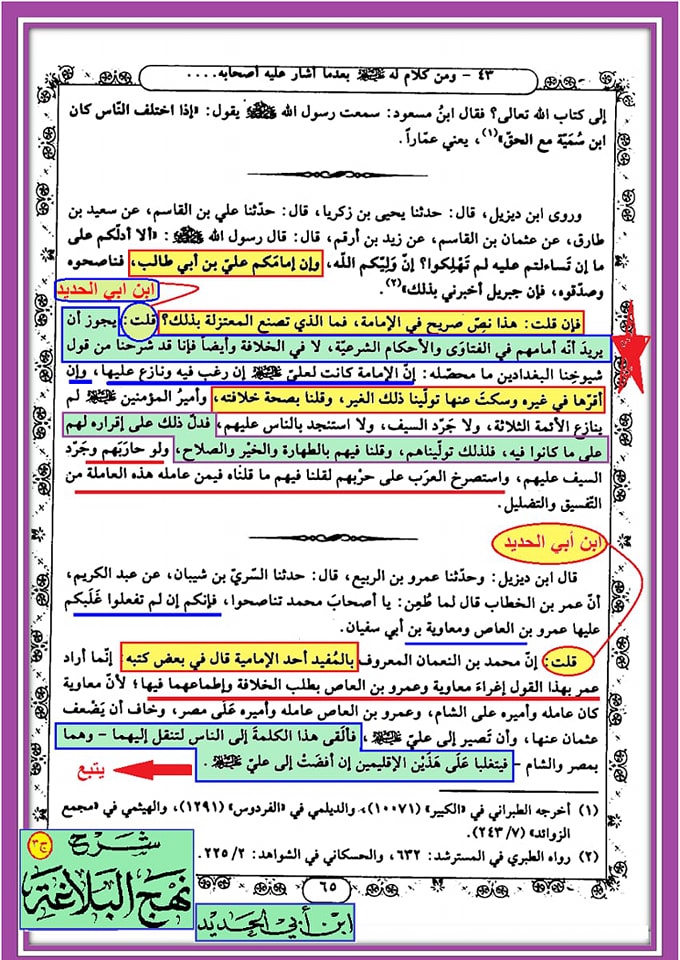 ٤٣ - ومن كلام له عليه السلام بعدما أشار عليه أصحابه ....
إلى كتاب الله تعالى؟ فقال ابنُ مسعود: سمعت رسول الله ﷺ يقول: «إذا اختلف النّاس كان
ابن سُمَيّة مع الحق»(١)، يعني عمّاراً.
وروى ابن ديزيل، قال: حدثنا يحيى بن زكريا، قال: حدّثنا علي بن القاسم، عن سعيد بن
طارق، عن عثمان بن القاسم، عن زيد بن أرقم، قال: قال رسول الله ﷺ: «ألا أدلّكم على
ما إن تَساءلتم عليه لم تَهْلِكوا؟ إنّ وَلِيّكم الله، وإن إمامَكم عليّ بن أبي طالب، فناصحوه
وصدّقوه، فإن جبريل أخبرني بذلك»(٢).
ابن ابي الحديد
فإن قلت: هذا نصّ صريح في الإمامة، فما الذي تصنع المعتزلة بذلك؟ قلت: يجوز أن
يريدَ أنّه أمامهم في الفتاوَى والأحكام الشرعيّة، لا في الخلافة وأيضاً فإنا قد شرحْنا من قول
شيوخِنا البغدادين ما محصّله: إنّ الإمامة كانت لعليّ عليه السلام إن رغب فيه ونازع عليها، وإن
أقرّها في غيره وسكتَ عنها تولّينا ذلك الغير، وقلنا بصحة خلافته، وأميرُ المؤمنين عليه السلام لم
ينازع الأئمة الثلاثة، ولا جَرّد السيف، ولا استنجد بالناس عليهم، فدلّ ذلك على إقراره لهم
على ما كانوا فيه، فلذلك تولّيناهم، وقلنا فيهم بالطهارة والخيْر والصلاح، ولو حاربَهم وجَرّد
السيف عليهم، واستصرخ العرَب على حرْبهم لقلنا فيهم ما قلناه فيمن عامله هذه العاملة من
التّفسيق والتضليل.
ابن أبي الحديد
قال ابن ديزيل: وحدّثنا عمرو بن الربيع، قال: حدثنا السّريّ بن شيبان، عن عبد الكريم،
أنّ عمر بن الخطاب قال لما طُعِن: يا أصحابَ محمد تناصحوا، فإنكم إن لم تفعلوا غَلَبكم
عليها عمرو بن العاص ومعاوية بن أبي سفيان.
قلت: إنّ محمد بن النعمان المعروف بالمُفيد أحد الإمامية قال في بعض كتبه: إنّما أراد
عمر بهذا القول إغراءَ معاوية وعمرو بن العاص بطلب الخلافة وإطماعهما فيها؛ لأنّ معاوية
كان عامله وأميره على الشام، وعمرو بن العاص عامله وأميره عَلَى مصر، وخاف أن يَضْعف
عثمان عنها، وأن تَصير إلى عليّ عليه السلام، فألقَى هذا الكلمةَ إلى الناس لتنقل إليهما - وهما
بمصر والشام - فيتغلبا عَلَى هَذَيْن الإقليمين إن أفضَتْ إلى عليّ عليه السلام.
يتبع
(١) أخرجه الطبراني في «الكبير» (١٠٠٧١)، والديلمي في «الفردوس» (١٢٩١)، والهيثمي في «مجمع
الزوائد» (٢٤٣/٧).
(٢) رواه الطبري في المسترشد: ٦٣٢، والحسكاني في الشواهد: ٢٢٥/٢.
شرح
ج٣
نهج البلاغة
٦٥
ابن أبي الحديد